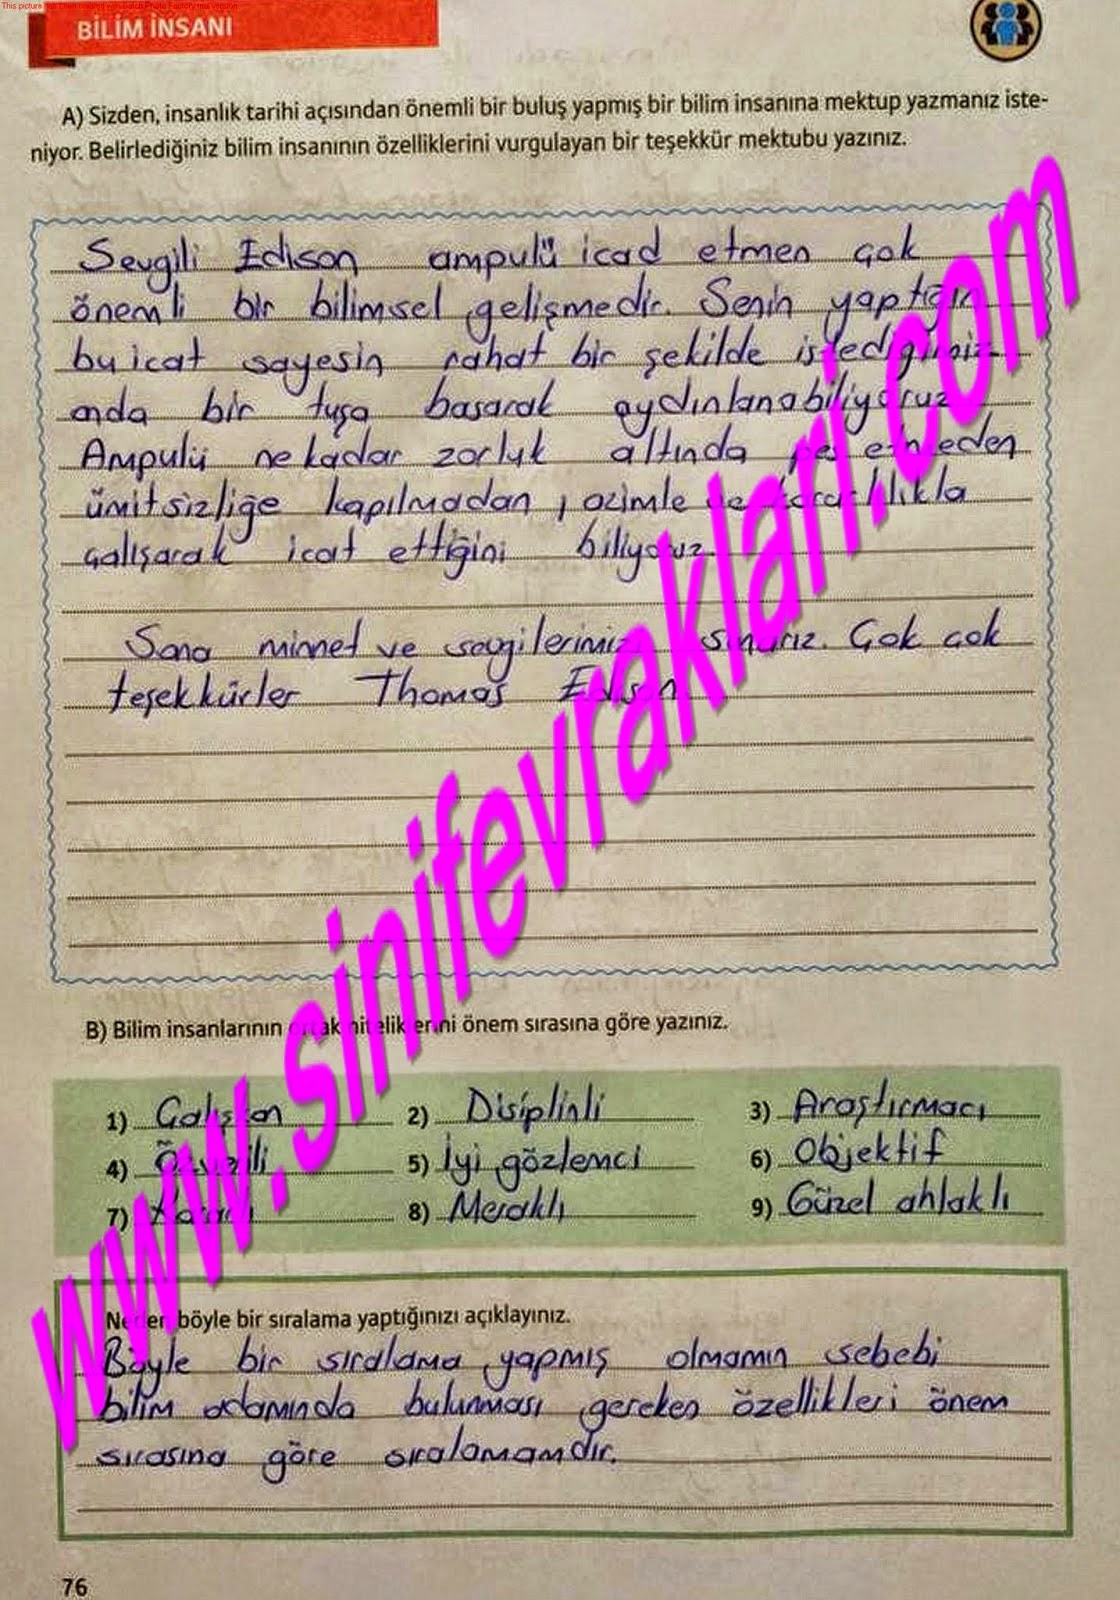 BİLİM İNSANI
A) Sizden, insanlık tarihi açısından önemli bir buluş yapmış bir bilim insanına mektup yazmanız iste-
niyor. Belirlediğiniz bilim insanının özelliklerini vurgulayan bir teşekkür mektubu yazınız.
Sevgili Edison ampulü icad etmen çok
önemli bir bilimsel gelişmedir. Senin yaptığın
bu icat sayesin rahat bir şekilde istediğimiz
anda bir tuşa basarak aydınlanabiliyoruz
Ampulü ne kadar zorluk altında pes etmeden
ümitsizliğe kapılmadan, azimle ve kararlılıkla
çalışarak icat ettiğini biliyoruz.
Sana minnet ve sevgilerimizi sunarız. Çok çok
teşekkürler Thomas Edison
www.sinifevraklari.com
B) Bilim insanlarının ortak niteliklerini önem sırasına göre yazınız.
1) Çalışkan 2) Disiplinli 3) Araştırmacı
4) 5) İyi gözlemci 6) Objektif
7) 8) Meraklı 9) Güzel ahlaklı
Neden böyle bir sıralama yaptığınızı açıklayınız.
Böyle bir sıralama yapmış olmamın sebebi
bilim adamında bulunması gereken özellikleri önem
sırasına göre sıralamamdır.
76